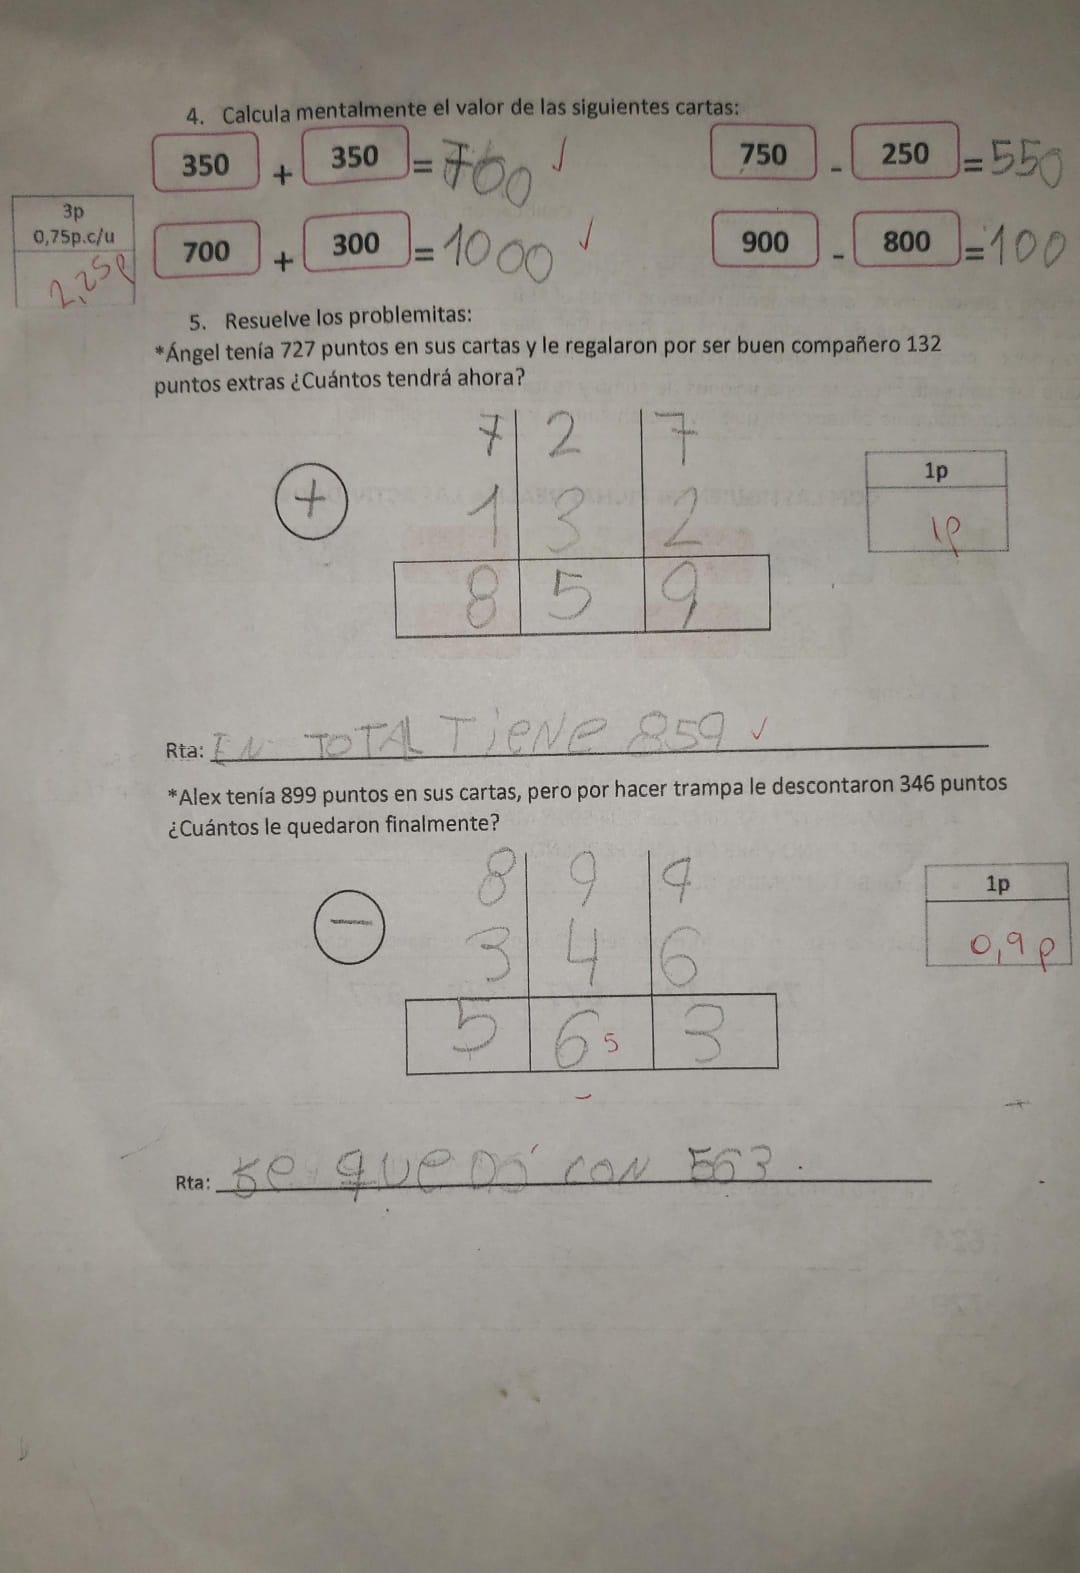 4. Calcula mentalmente el valor de las siguientes cartas:
350 + 350 = 700 ✓ 750 - 250 = 550
3p
0,75p.c/u
2,25p
700 + 300 = 1000 ✓ 900 - 800 = 100
5. Resuelve los problemitas:
*Ángel tenía 727 puntos en sus cartas y le regalaron por ser buen compañero 132
puntos extras ¿Cuántos tendrá ahora?
7 2 7
+ 1 3 2
8 5 9
1p
1p
Rta: EN TOTAL TiENe 859 ✓
*Alex tenía 899 puntos en sus cartas, pero por hacer trampa le descontaron 346 puntos
¿Cuántos le quedaron finalmente?
8 9 9
- 3 4 6
5 6 5 3
1p
0,9p
Rta: se queDó con 563.